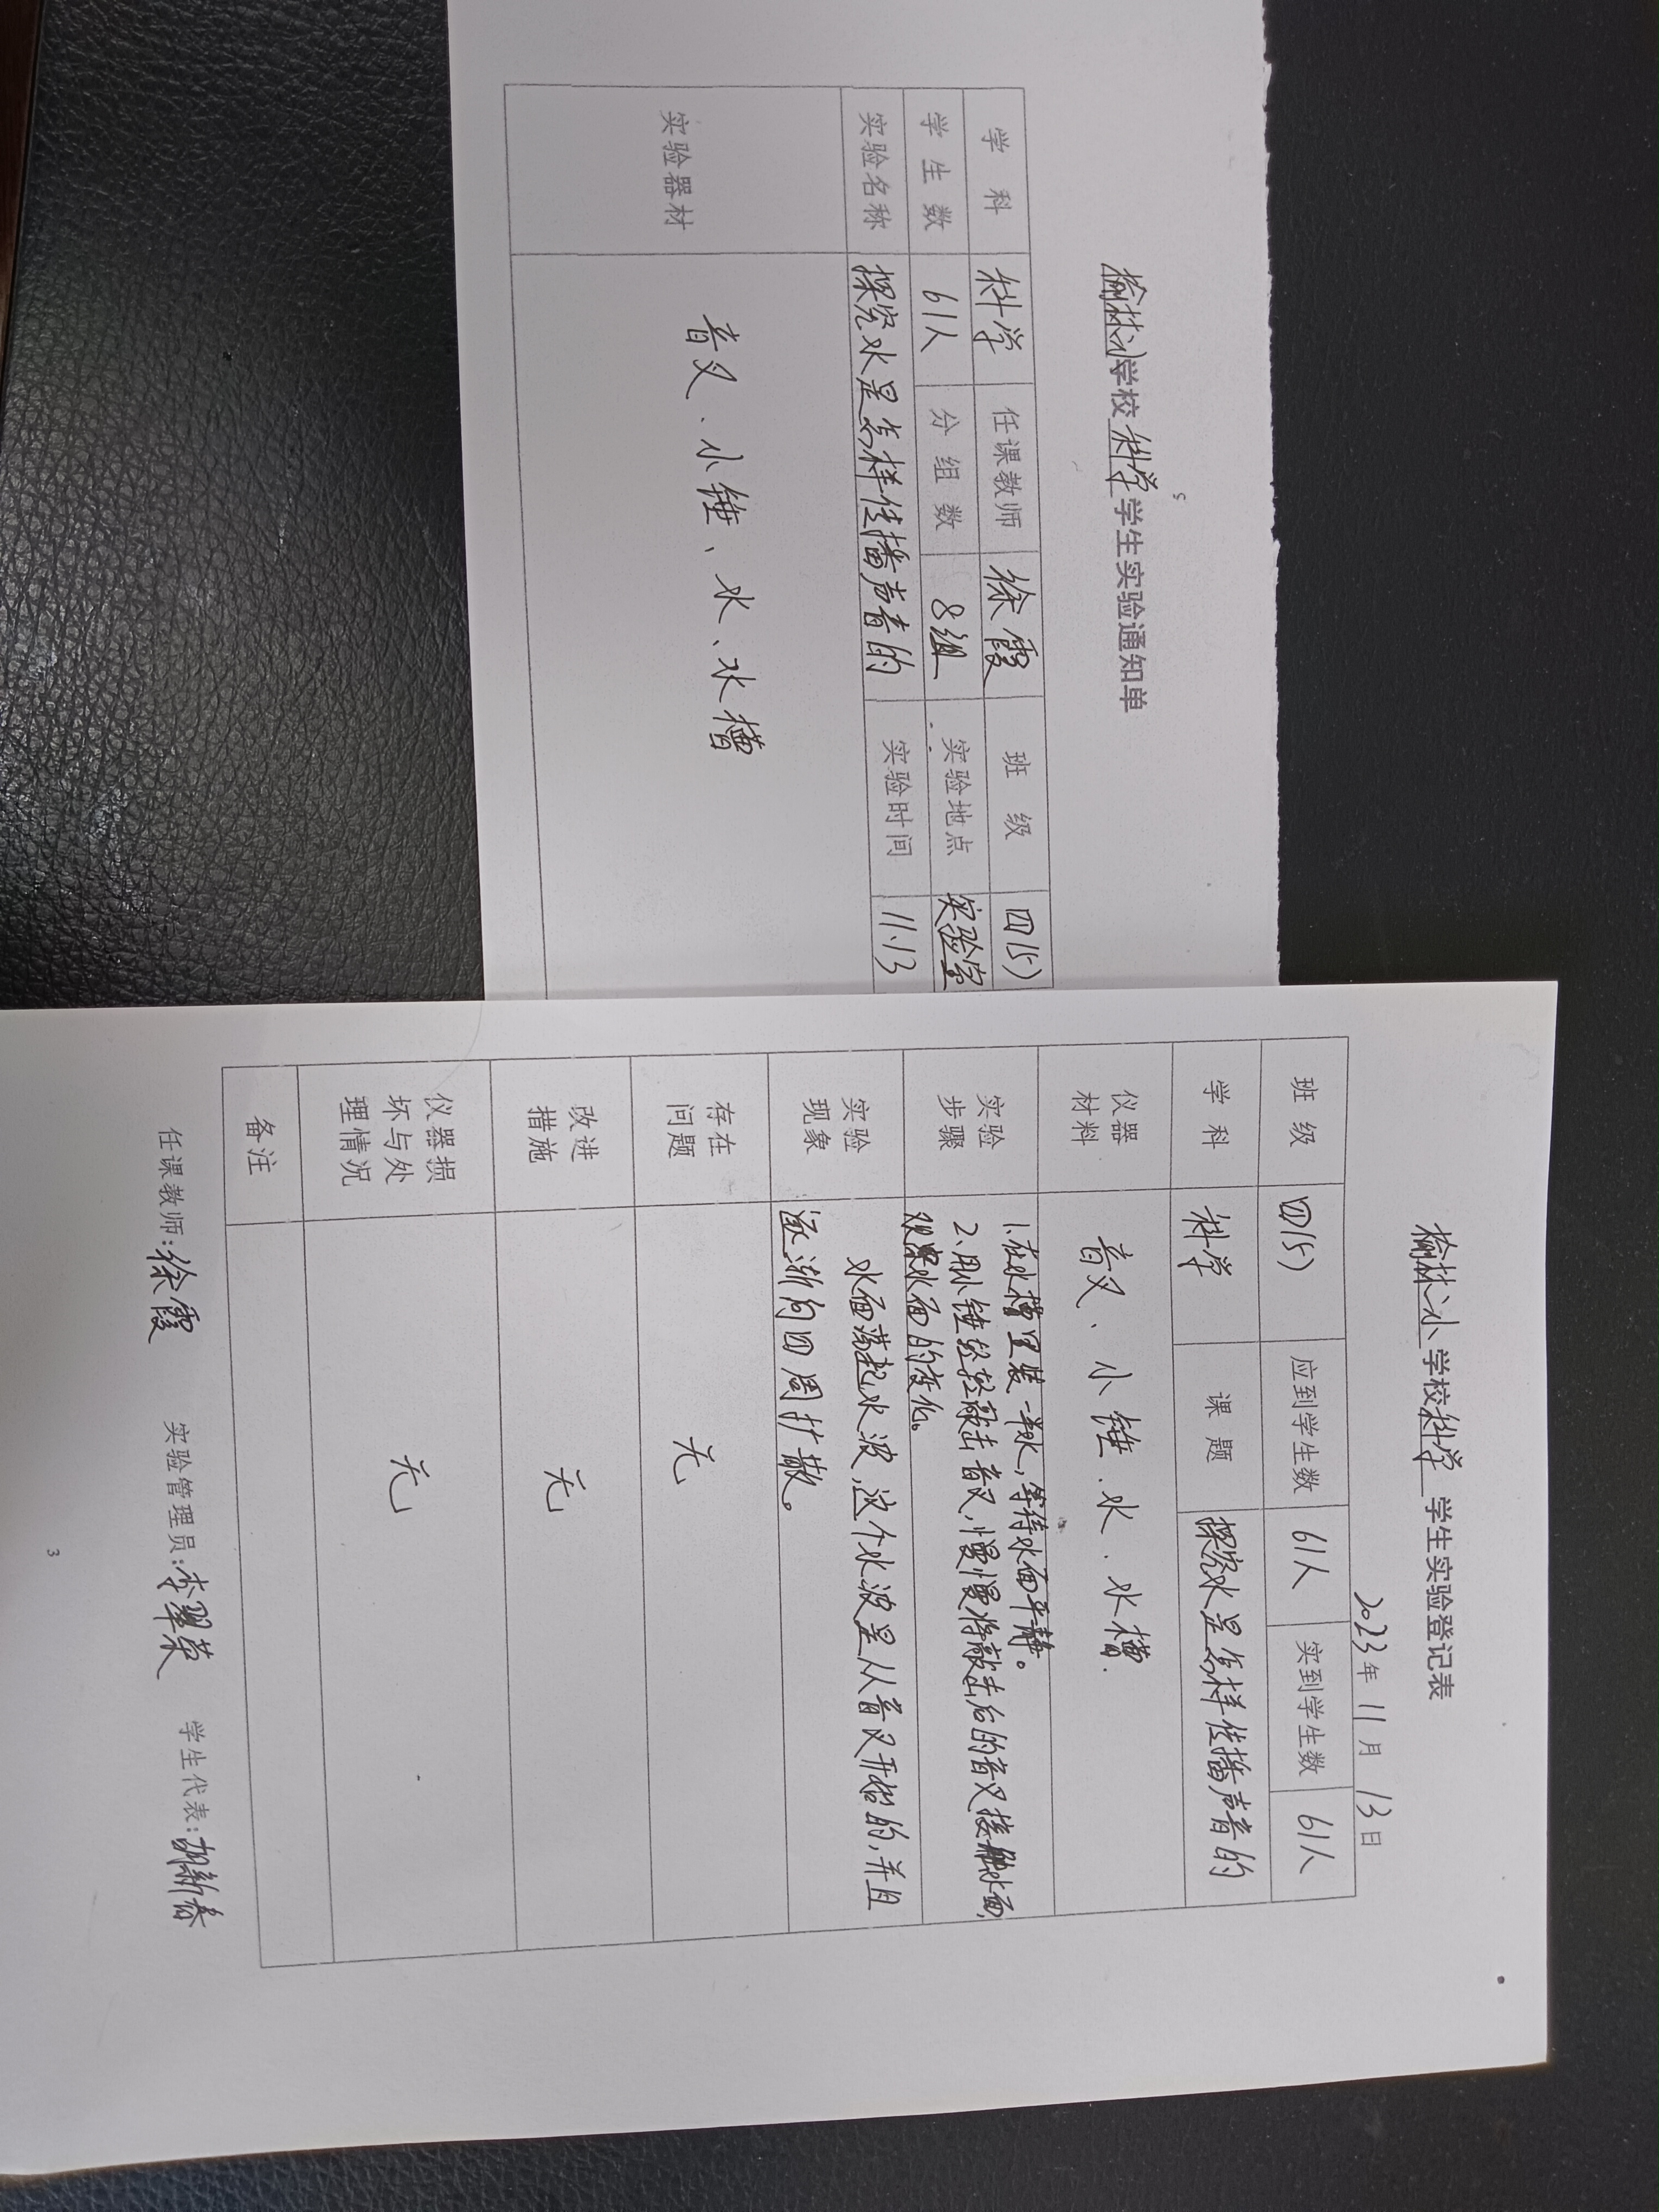 榆林小学校科学学生实验通知单
学 科 科学 任课教师 徐霞 班 级 四(5)
学 生 数 61人 分 组 数 8组 实验地点 实验室
实验名称 探究水是怎样传播声音的 实验时间 11.13
实验器材 音叉、小锤、水、水槽
榆林小学校科学学生实验登记表
2023年 11月 13日
班 级 四(5) 应到学生数 61人 实到学生数 61人
学 科 科学 课 题 探究水是怎样传播声音的
仪器
材料
音叉、小锤、水、水槽.
实验
步骤
1.在水槽里装一半水,等待水面平静。
2.用小锤轻轻敲击音叉,慢慢将敲击后的音叉接触水面,
观察水面的变化。
实验
现象
水面荡起水波,这个水波是从音叉开始的,并且
逐渐向四周扩散。
存在
问题
无
改进
措施
无
仪器损
坏与处
理情况
无
备注
任课教师:徐霞 实验管理员:李翠荣 学生代表:胡新春
3